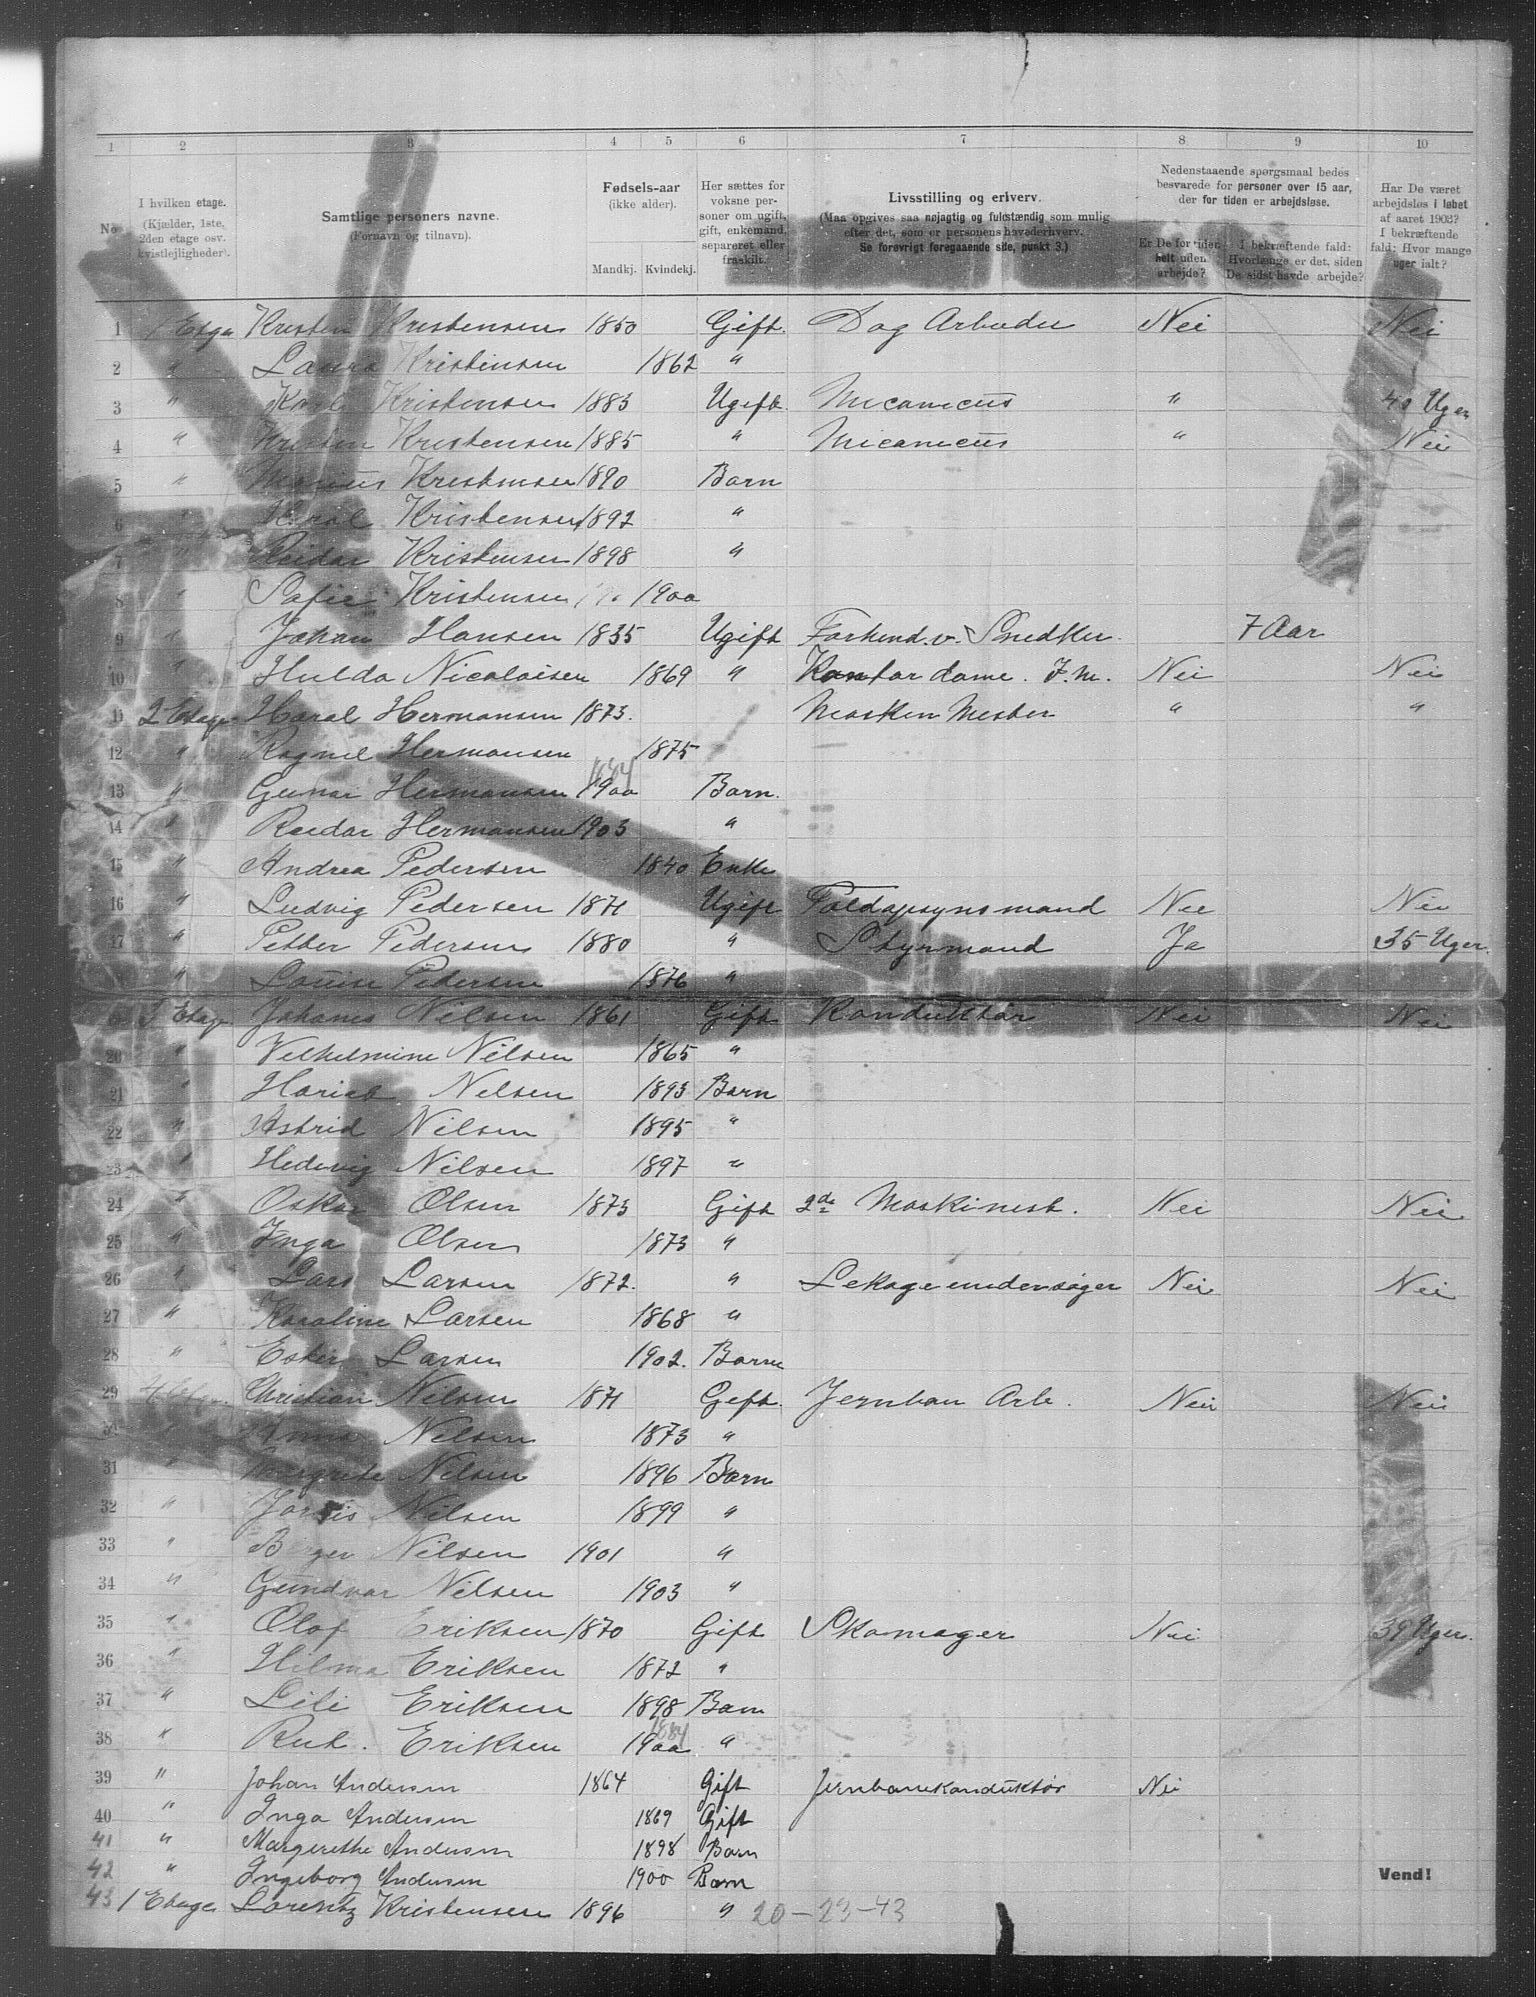 1 2 3 4 5 6 7 8 9 10
No
I hvilken etage. (Kjælder, 1ste, 2den etage osv. kvistlejligheder).
Samtlige personers navne. (Fornavn og tilnavn).
Fødsels-aar (ikke alder). Mandkj. Kvindekj.
Her sættes for voksne personer om ugift, gift, enkemand, separeret eller fraskilt.
Livsstilling og erhverv. (Maa opgives saa nøjagtig og fuldstændig som mulig efter det, som er personens hovederhverv. Se forøvrigt foregaaende side, punkt 3.)
Nedenstaaende spørgsmaal bedes besvarede for personer over 15 aar, der for tiden er arbejdsløse.
Er De for tiden helt uden arbejde?
I bekræftende fald: Hvorlænge er det, siden De sidst havde arbejde?
Har De været arbejdsløs i løbet af aaret 1903? I bekræftende fald: Hvor mange uger ialt?
1 1 Etage Kristen Kristensen 1850 Gift. Dag Arbeder Nei Nei
2 " Laura Kristensen 1862 "
3 " Karl Kristensen 1883 Ugift Mecanicus " Uger
4 " Kristen Kristensen 1885 " Micanicus " Nei
5 " Marius Kristensen 1890 Barn
6 " Haral Kristensen 1892 "
7 " Reidar Kristensen 1898 "
8 " Sofie Kristensen 1900
9 " Johan Hansen 1835 Ugift Forhend. v. Snedker. 7 Aar
10 " Hulda Nicolaisen 1869 " Kontor dame. J.M. Nei Nei
11 2 Etage Haral Hermansen 1873. Maskin Mester " "
12 " Ragnil Hermansen 1875
13 " Gunar Hermansen 1900 Barn.
14 " Reidar Hermansen 1903 "
15 " Andrea Pedersen 1840 Enke
16 " Ludvig Pedersen 1871 Ugift Toldopsynsmand Nei Nei
17 " Petter Pedersen 1880 " Styrmand Ja 35 Uger.
" Louise Pedersen 1876 "
19 3 Etage Johanes Nilsen 1861 Gift Konduktør Nei Nei
20 " Vilhelmine Nilsen 1865 "
21 " Hariet Nilsen 1893 Barn
22 " Astrid Nilsen 1895 "
23 " Hedvig Nilsen 1897 "
24 " Oskar Olsen 1873 Gift 2de Maskinest. Nei Nei
25 " Inga Olsen 1873 "
26 " Lars Larsen 1872. " Lekageundersøger Nei Nei
27 " Karoline Larsen 1868 "
28 " Ester Larsen 1902. Barn
29 Christian Nilsen 1871 Gift. Jernban Arb. Nei Nei
30 " Anna Nilsen 1873 "
31 " Margrete Nilsen 1896 Barn
32 " Nilsen 1899 "
33 " Birger Nilsen 1901 "
34 " Gundvor Nilsen 1903 "
35 " Olof Eriksen 1870 Gift Skomager Nei 39 Uger.
36 " Hilma Eriksen 1872 "
37 " Lili Eriksen 1898 Barn
38 " Rut. Eriksen 1900 "
39 " Johan Andersen 1864 Gift Jernbanekonduktør Nei
40 " Inga Andersen 1869 Gift
41 " Margerethe Andersen 1898 Barn
42 " Ingeborg Andersen 1900 Barn Vend!
43 1 Etage Lorentz Kristensen 1896 " 20-23-43